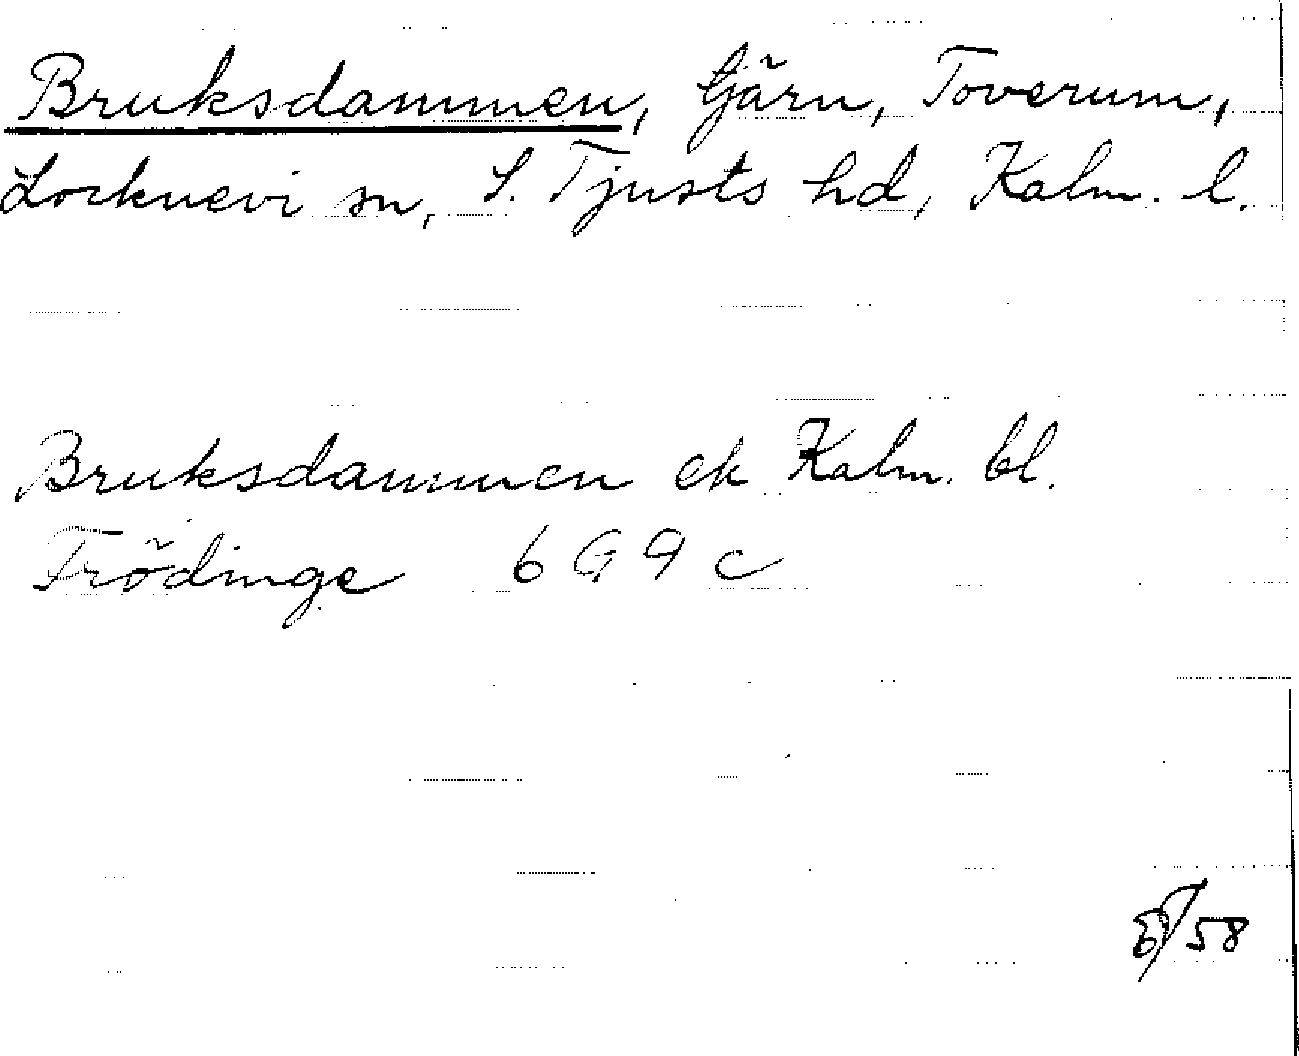 Bruksdammen, tjärn, Toverum,
Locknevi sn, S. Tjusts hd, Kalm. l.
Bruksdammen ek Kalm. bl.
Frödinge 6 G 9 c
/58